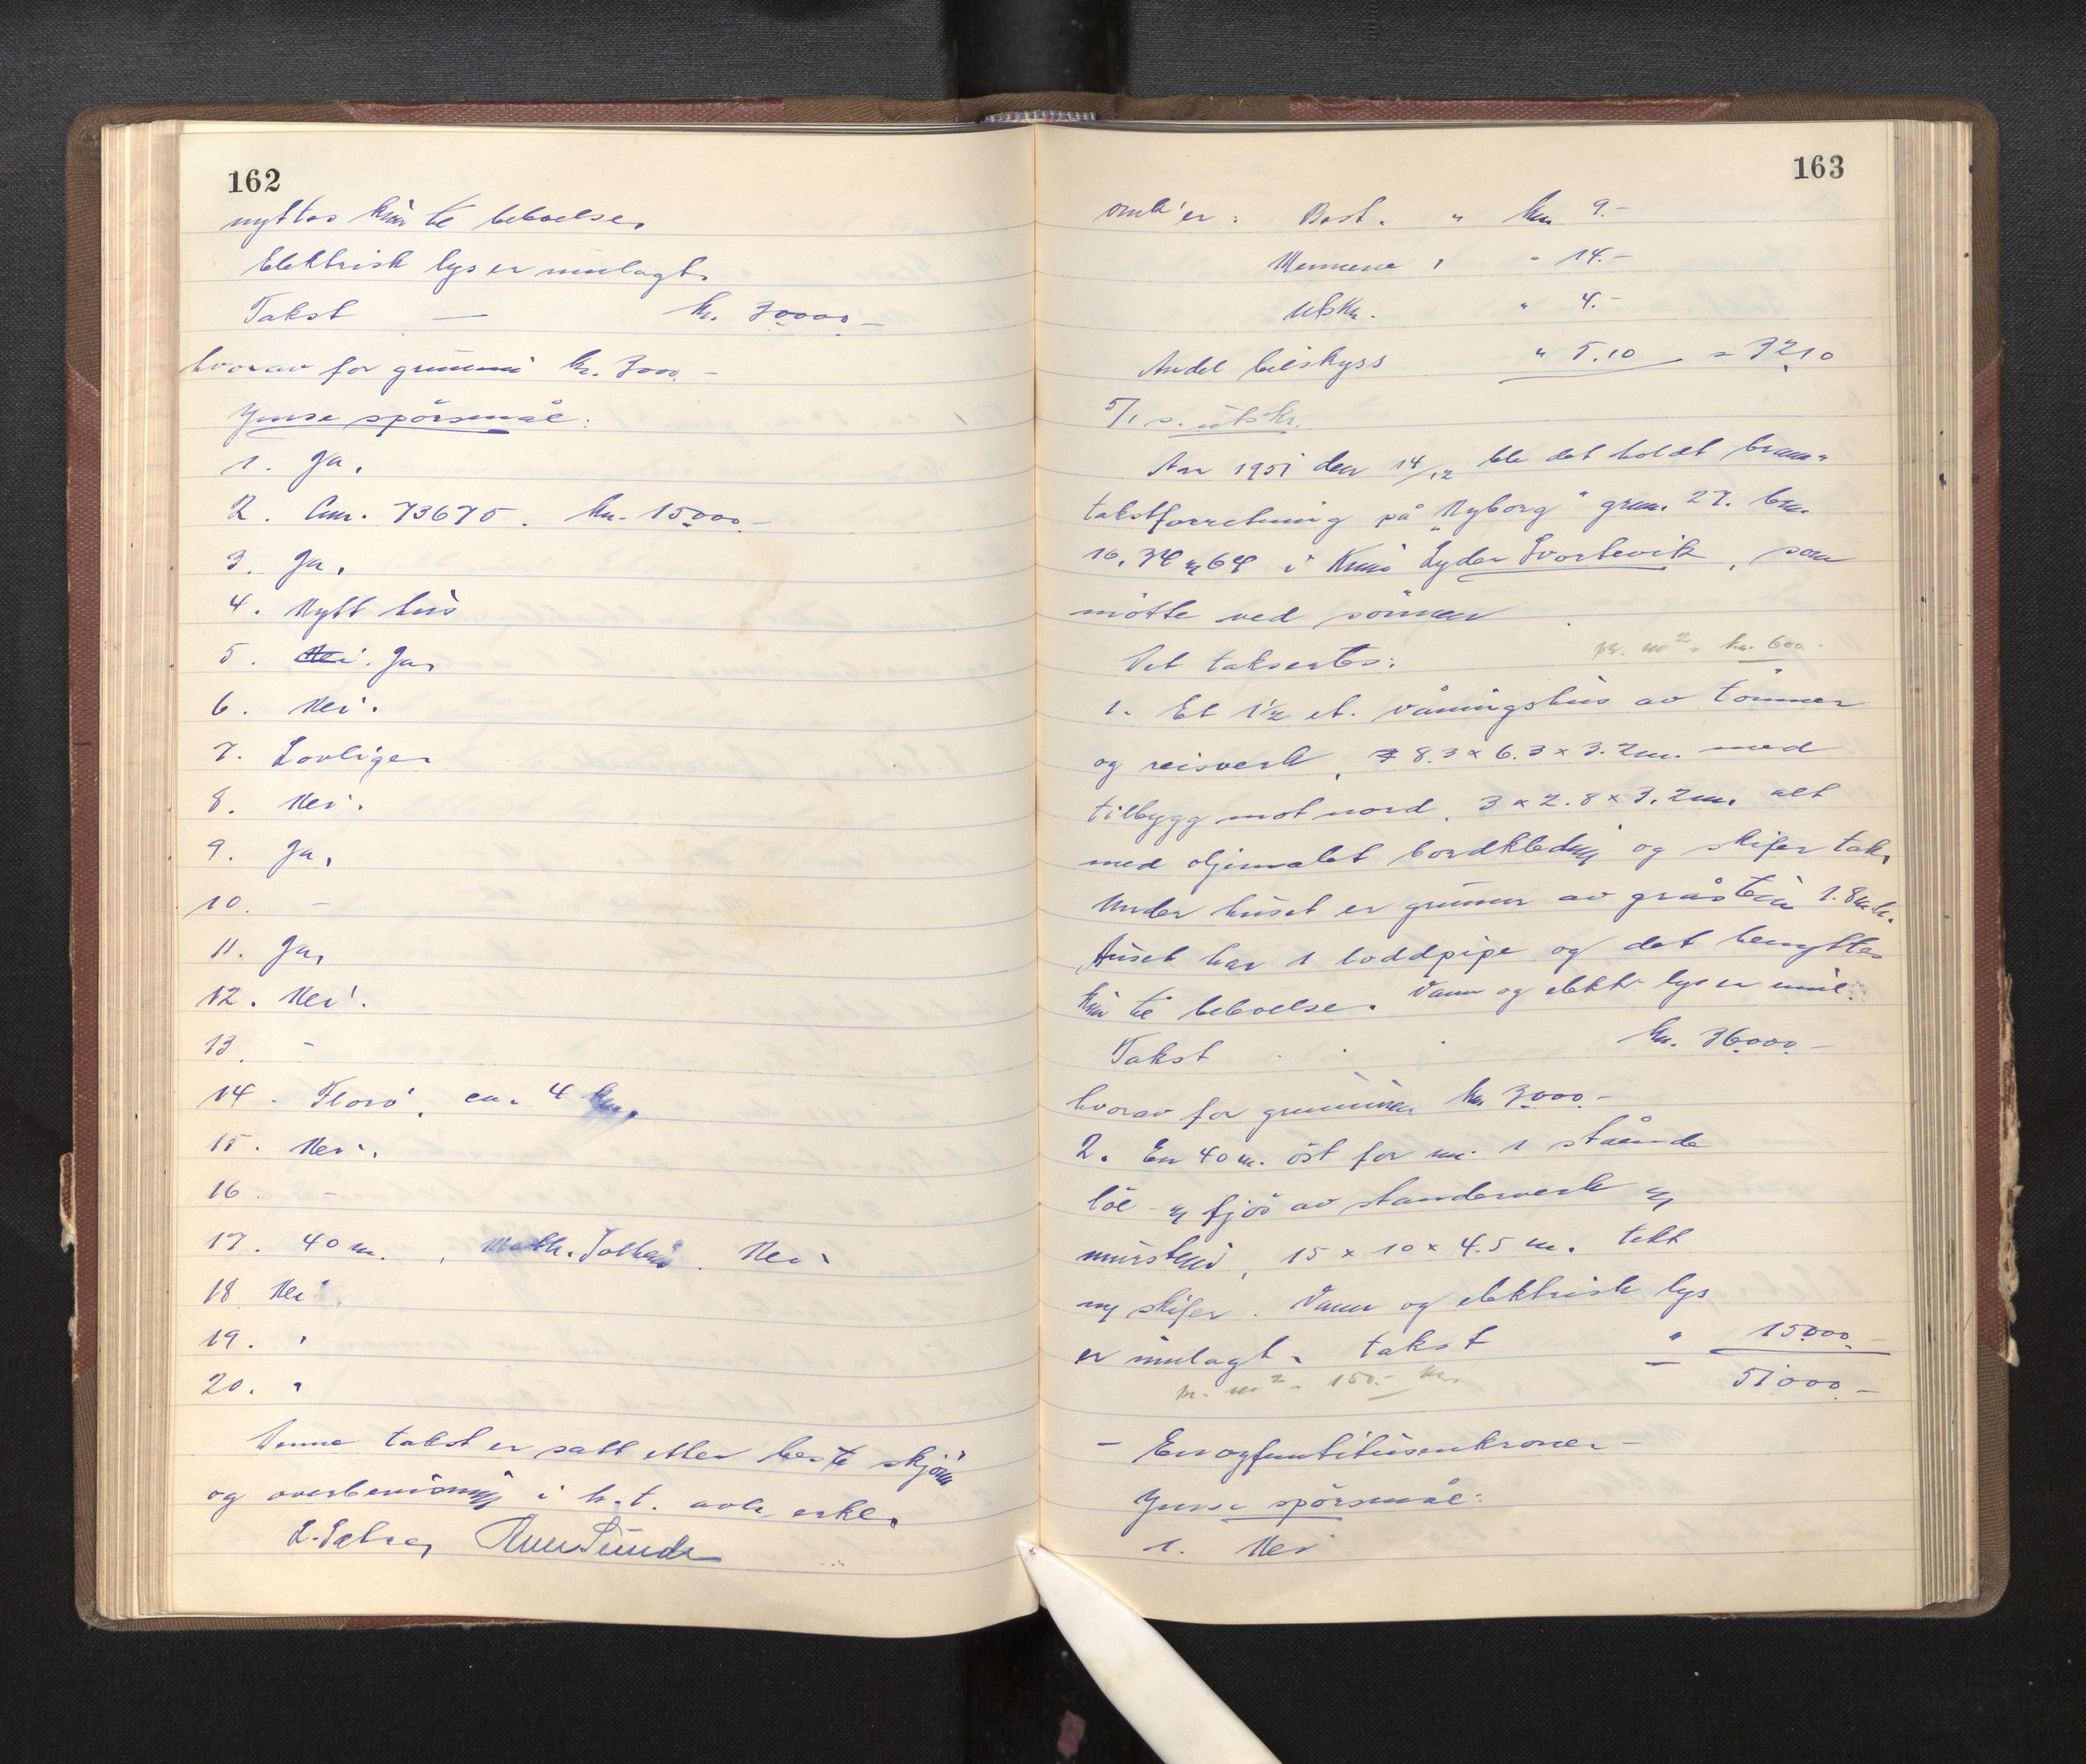 162
nyttes kun til beboelse.
Elektrisk lys er innlagt.
Takst — kr. 30000.-
hvorav for grunnmur kr. 3000.-
Ymse spörsmål:
1. Ja.
2. Cnr. 73675. kr. 15000.-
3. Ja.
4. Nytt hus
5. Nei. Ja.
6. Nei.
7. Lovlige.
8. Nei.
9. Ja.
10. -
11. Ja.
12. Nei.
13. -
14. Florö, ca. 4 km.
15. Nei.
16. -
17. 40 m., Math. Nei.
18 Nei
19. "
20. "
Denne takst er satt etter beste skjönn
og overbevisning i h.t. avla erkl.
163
omk'er: Best. " kr. 9.-
Mennene, " 14.-
Utskr. " 4.-
Andel bilskyss " 5.10 = 32.10
5/1 s. utskr.
Aar 1951 den 14/12 ble det holdt brann-
takstforretning på "Nyborg" grnr. 27. bnr.
16, 34 og 64 i Kinn Lyder Svortevik, som
mötte ved sönnen
Det taksertes: pr. m² kr. 600.-
1. Et 1½ et. våningshus av tömmer
og reisverk, 8.3 x 6.3 x 3.2 m. med
tilbygg mot nord, 3 x 2.8 x 3.2 m. alt
med oljemalet bordkledning og skifer tak.
Under huset er grunnmur av gråstein 1.8 m. h.
Huset har 1 loddpipe og det benyttes
kun til beboelse. Vann og elektr. lys er innl.
Takst kr. 36000.-
hvorav for grunnmuren kr 3000.-
2. En 40 m. öst for nr. 1 stående
löe- og fjös av standerverk og
murstein, 15 x 10 x 4.5 m. tekt
m/ skifer. Vann og elektrisk lys
er innlagt. takst " 15000.-
pr. m² 150.- kr. 51000.-
- Enogfemtitusenkroner -
Ymse spörsmål:
1. Nei